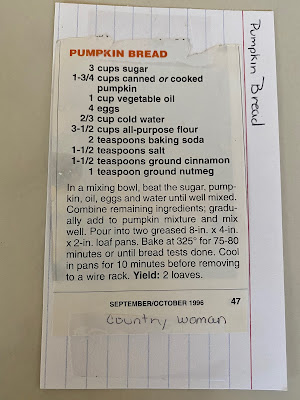 PUMPKIN BREAD
3 cups sugar
1-3/4 cups canned or cooked
pumpkin
1 cup vegetable oil
4 eggs
2/3 cup cold water
3-1/2 cups all-purpose flour
2 teaspoons baking soda
1-1/2 teaspoons salt
1-1/2 teaspoons ground cinnamon
1 teaspoon ground nutmeg
In a mixing bowl, beat the sugar, pump-
kin, oil, eggs and water until well mixed.
Combine remaining ingredients; gradu-
ally add to pumpkin mixture and mix
well. Pour into two greased 8-in. x 4-in.
x 2-in. loaf pans. Bake at 325° for 75-80
minutes or until bread tests done. Cool
in pans for 10 minutes before removing
to a wire rack. Yield: 2 loaves.
SEPTEMBER/OCTOBER 1996 47
Country Woman
Pumpkin Bread